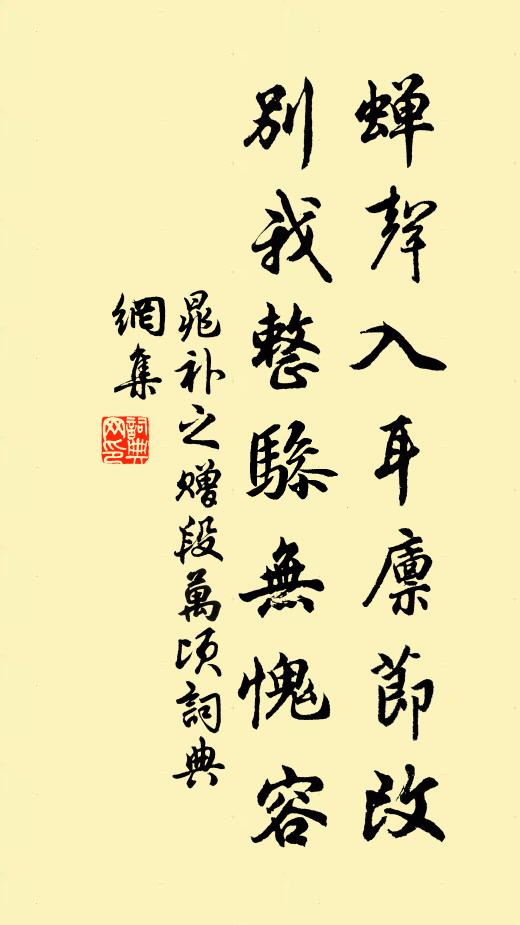 蟬聲入耳廩節改
別我整驂無愧容
晁补之赠段萬顷詞典
網集
詞典
网印